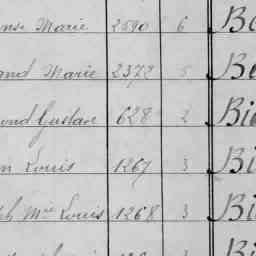 Marie 2590 6 Bo
and Marie 2372 5 Be
ond Gustave 628 2 Bi
n Louis 1267 3 Bi
ph Mie Louis 1268 3 Bi